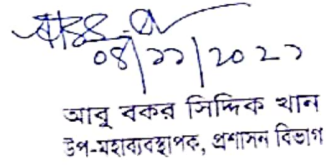 ০৪/১১/২০২১
আবু বকর সিদ্দিক খান
উপ-মহাব্যবস্থাপক, প্রশাসন বিভাগ